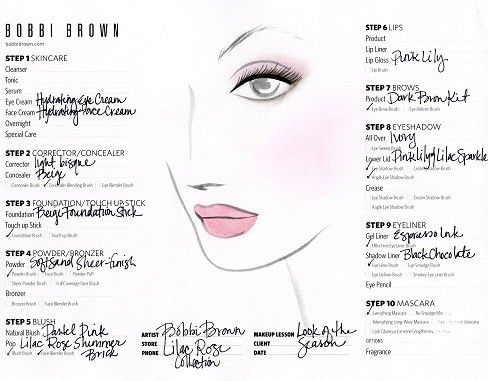 BOBBI BROWN
bobbibrown.com
STEP 1 SKINCARE
Cleanser
Tonic
Serum
Eye Cream Hydrating Eye Cream
Face Cream Hydrating Face Cream
Overnight
Special Care
STEP 2 CORRECTOR/CONCEALER
Corrector light bisque
Concealer Beige
Concealer Brush Concealer Blending Brush Eye Blender Brush
STEP 3 FOUNDATION/TOUCH UP STICK
Foundation Beige Foundation Stick
Touch up Stick
Foundation Brush Touch up Brush
STEP 4 POWDER/BRONZER
Powder Soft Sand Sheer Finish
Powder Brush Face Brush Powder Puff
Sheer Powder Brush Full Coverage Face Brush
Bronzer
Bronzer Brush Face Blender Brush
STEP 5 BLUSH
Natural Blush Pastel Pink
Pop Lilac Rose Shimmer Brick
Blush Brush Face Blender Brush
ARTIST Bobbi Brown
STORE Lilac Rose
PHONE Collection
MAKEUP LESSON Look of the
CLIENT Season
DATE
STEP 6 LIPS
Product
Lip Liner
Lip Gloss Pink Lily
Lip Brush
STEP 7 BROWS
Product Dark Brow Kit
Eye Brow Brush Eye Definer Brush
STEP 8 EYESHADOW
All Over Ivory
Eye Sweep Brush
Lower Lid Pink Lily/Lilac Sparkle
Eye Shadow Brush Cream Shadow Brush
Angle Eye Shadow Brush
Crease
Eye Shadow Brush Cream Shadow Brush
Angle Eye Shadow Brush
STEP 9 EYELINER
Gel Liner Espresso Ink
Ultra Fine Eye Liner Brush
Shadow Liner Black Chocolate
Eye Liner Brush Eye Smudge Brush
Eye Definer Brush Smokey Eye Liner Brush
Eye Pencil
STEP 10 MASCARA
Everything Mascara No Smudge
Intensifying Long-Wear Mascara
OPTIONS
Fragrance